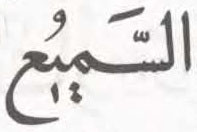 السَّمِيُع